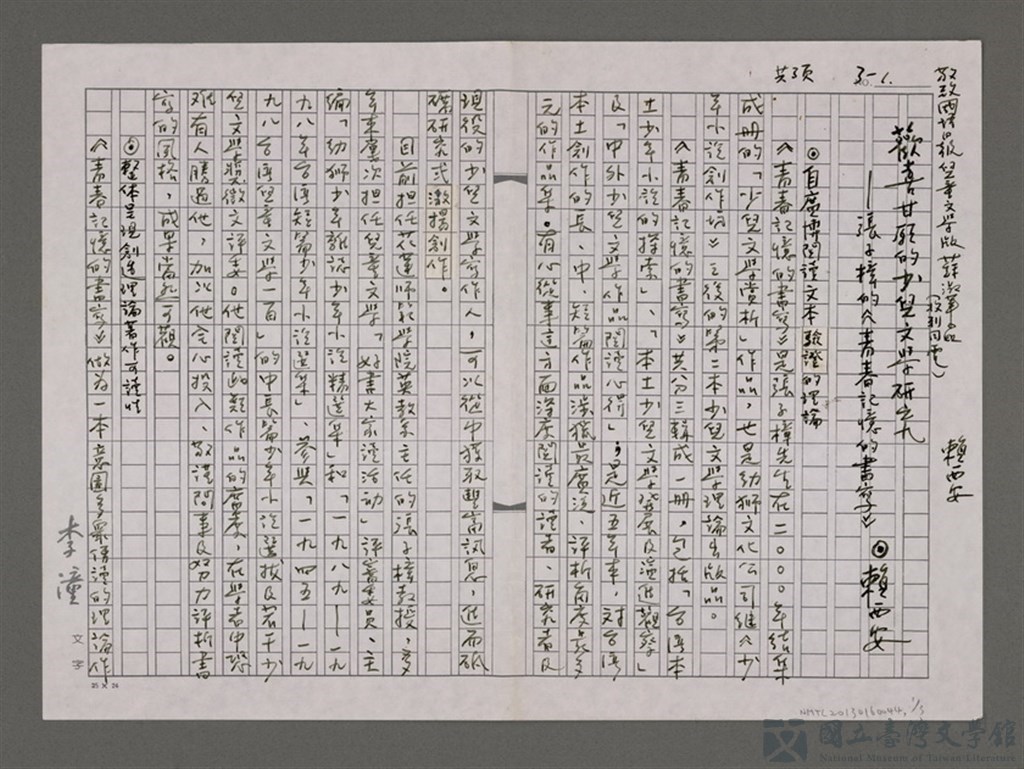 共3頁
3-1.
賴西安
歡喜甘願的少兒文學研究
——張子樟的《青春記憶的書寫》 ◎賴西安
◎自序博閱讀文本驗證的理論
《青春記憶的書寫》是張子樟先生在二〇〇〇年結集
成冊的「少兒文學賞析」作品,也是幼獅文化公司繼《少
年小說創作坊》之後的第二本少兒文學理論出版品。
《青春記憶的書寫》共分三輯成一冊,包括「台灣本
土少年小說的探索」、「本土少兒文學發展及演進觀察」
及「中外少兒文學作品閱讀心得」;是近五年來,對台灣
本土創作的長、中、短篇作品涉獵最廣泛、評析角度最多
元的作品集。有心從事這方面深度閱讀的讀者、研究者及
現役的少兒文學寫作人,可以從中獲取豐富訊息,進而砥
礪研究或激揚創作。
目前擔任花蓮師範學院英教系主任的張子樟教授,多
年來屢次擔任兒童文學「好書大家讀活動」評審委員、主
編「幼獅少年雜誌少年小說精選集」和「一九八九——一九
九八年台灣短篇少年小說選集」、參與「一九四五——一九
九八台灣兒童文學一百」的中長篇少年小說選拔及若干少
兒文學獎徵文評委。他閱讀此類作品的廣度,在學者中恐
難有人勝過他,加以他全心投入、敬謹閱筆及努力評析書
寫的風格,成果當然可觀。
◎整体呈現創造理論著作可讀性
《青春記憶的書寫》做為一本意圖多眾傳讀的理論作
李潼
文字
25 X 24
NMTL20130160044, 1/3
國立臺灣文學館
National Museum of Taiwan Literature